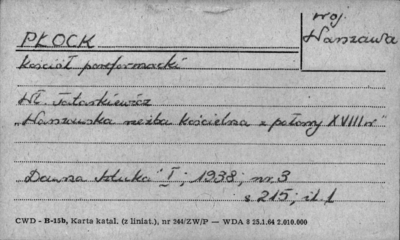 PŁOCK
woj.
Warszawa
Kościół poreformacki
Wł. Tatarkiewicz
"Warszawska rzeźba kościelna z połowy XVIII w"
Dawna Sztuka I ; 1938 ; nr. 3
s 215 ; il. 1
CWD - B-15b, Karta katal. (z liniat.), nr 244/ZW/P — WDA 0 25.1.64 2.010.000